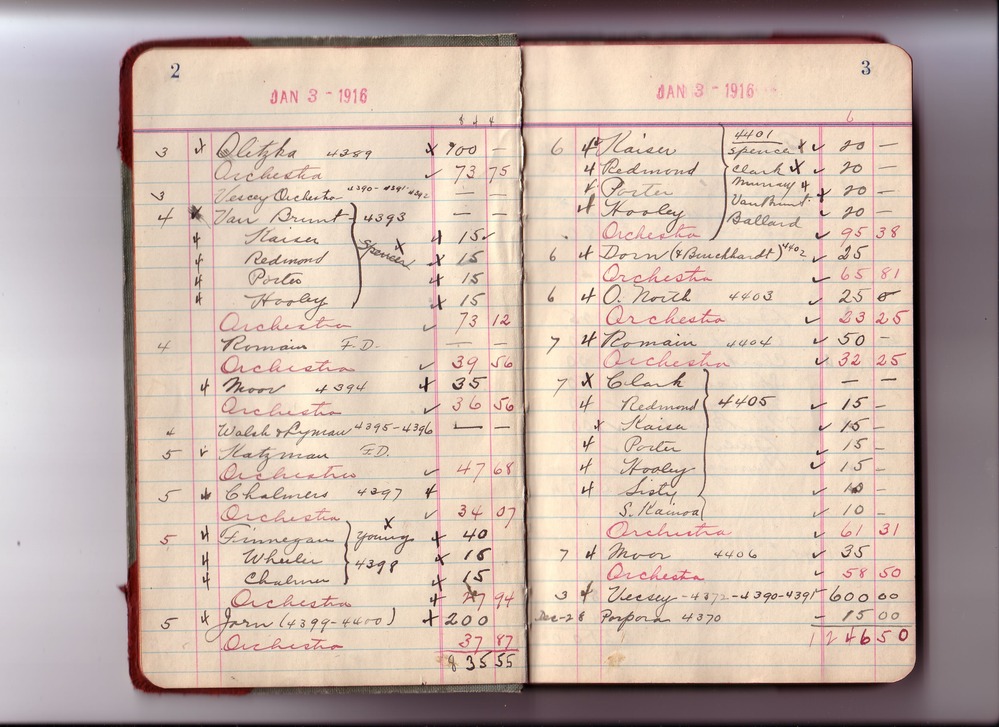 2
JAN 3 - 1916
3 Olitzka 4389 100 —
Orchestra 73 75
3 Vescey Orchestra 4390-4391-4392 — —
4 Van Brunt 4393 — —
Kaiser 15
Redmond Spencer 15
Porter 15
Hooley 15
Orchestra 73 12
4 Romain F.D. — —
Orchestra 39 56
Moor 4394 35
Orchestra 36 56
4 Walsh & Lyman 4395-4396 — —
5 Katzman F.D.
Orchestra 47 68
5 Chalmers 4397
Orchestra 34 07
5 Finnegan Youngs 40
Wheeler 4398 15
Chalmer 15
Orchestra 94
5 Jorn (4399-4400) 200
Orchestra 37 87
835 55
3
JAN 3 - 1916
6 Kaiser 4401 Spencer 20 —
Redmond Clark 20 —
Porter Murray 20 —
Hooley Van Brunt 20 —
Orchestra Ballard 95 38
6 Dorn (& Burckhardt) 4402 25
Orchestra 65 81
6 O. North 4403 25
Orchestra 23 25
7 Romain 4404 50 —
Orchestra 32 25
7 Clark — —
Redmond 4405 15 —
Kaiser 15 —
Porter 15 —
Hooley 15 —
Sisty 10 —
S. Kainoa 10 —
Orchestra 61 31
7 Moor 4406 35
Orchestra 58 50
3 Vecsey -4372-4390-4391 600 00
Dec-28 Porpora 4370 15 00
1246 50